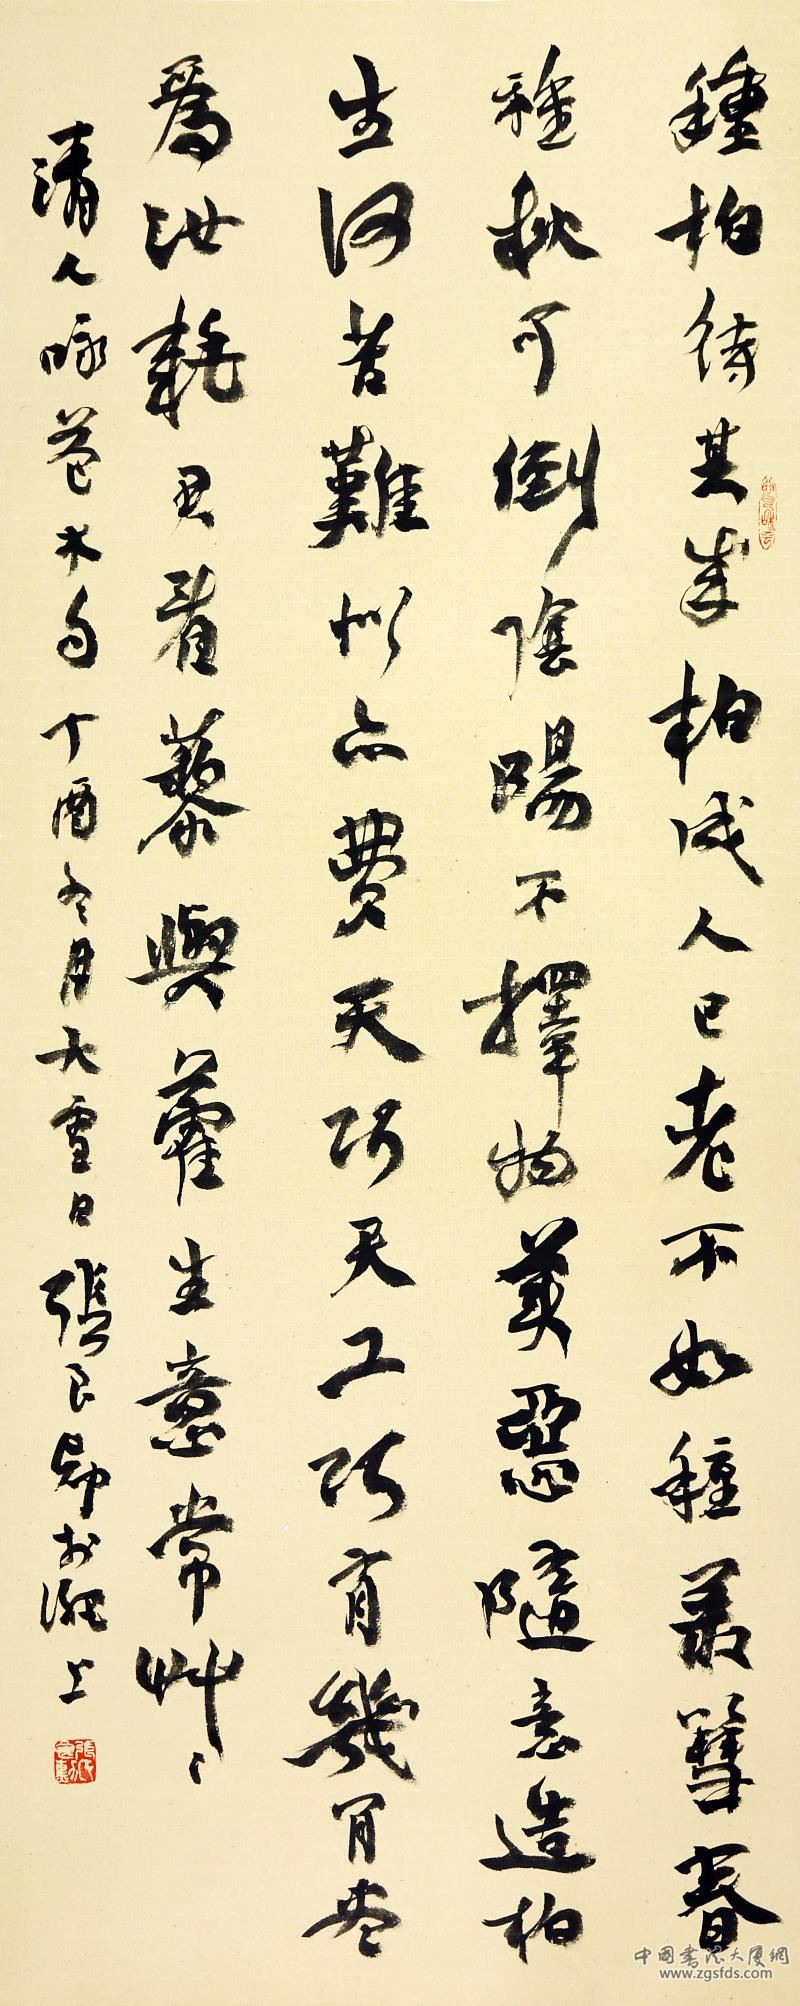 種柏待其成柏成人已老不如種叢篲春
種秋可倒陰陽不擇物美惡隨意造柏
生何苦難似亦費天巧天工巧有幾肯盡
為汝耗君看藜與藿生意常艸〻
清人咏花木句丁酉冬月大雪日張良勛於淝上
中國書法大廈網
www.zgsfds.com